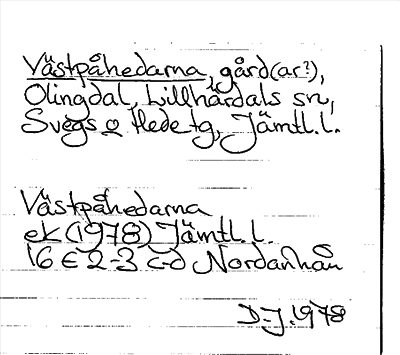 Västpåhedarna, gård(ar?),
Olingdal, Lillhärdals sn,
Svegs o Hede tg, Jämtl.l.
Västpåhedarna
ek (1978) Jämtl. l.
16 E 2-3 c-d Nordanhån
D-J 1978